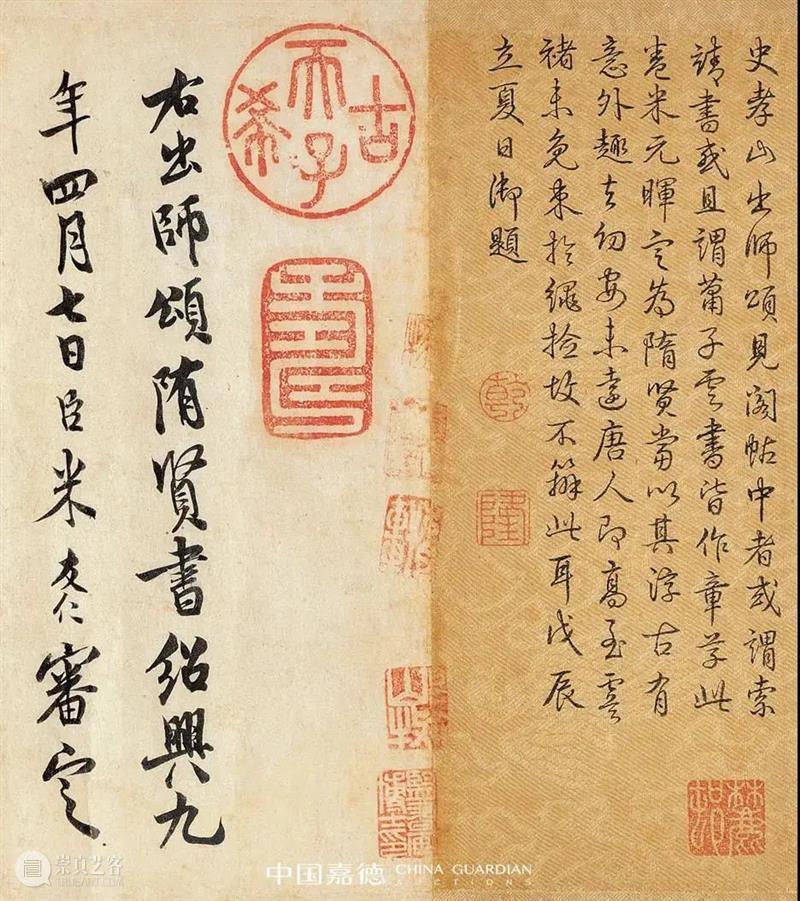 史孝山出師頌見閣帖中者或謂索
靖書或且謂蕭子雲書皆作章草此
卷米元暉定為隋賢當以其淳古有
意外趣去幼安未遠唐人即高至虞
褚未免束於繩撿故不辦此耳戊辰
立夏日御題
乾
隆
古希天子
壽
右出師頌隋賢書紹興九
年四月七日臣米友仁審定
中国嘉德 CHINA GUARDIAN
AUCTIONS
崇真艺客